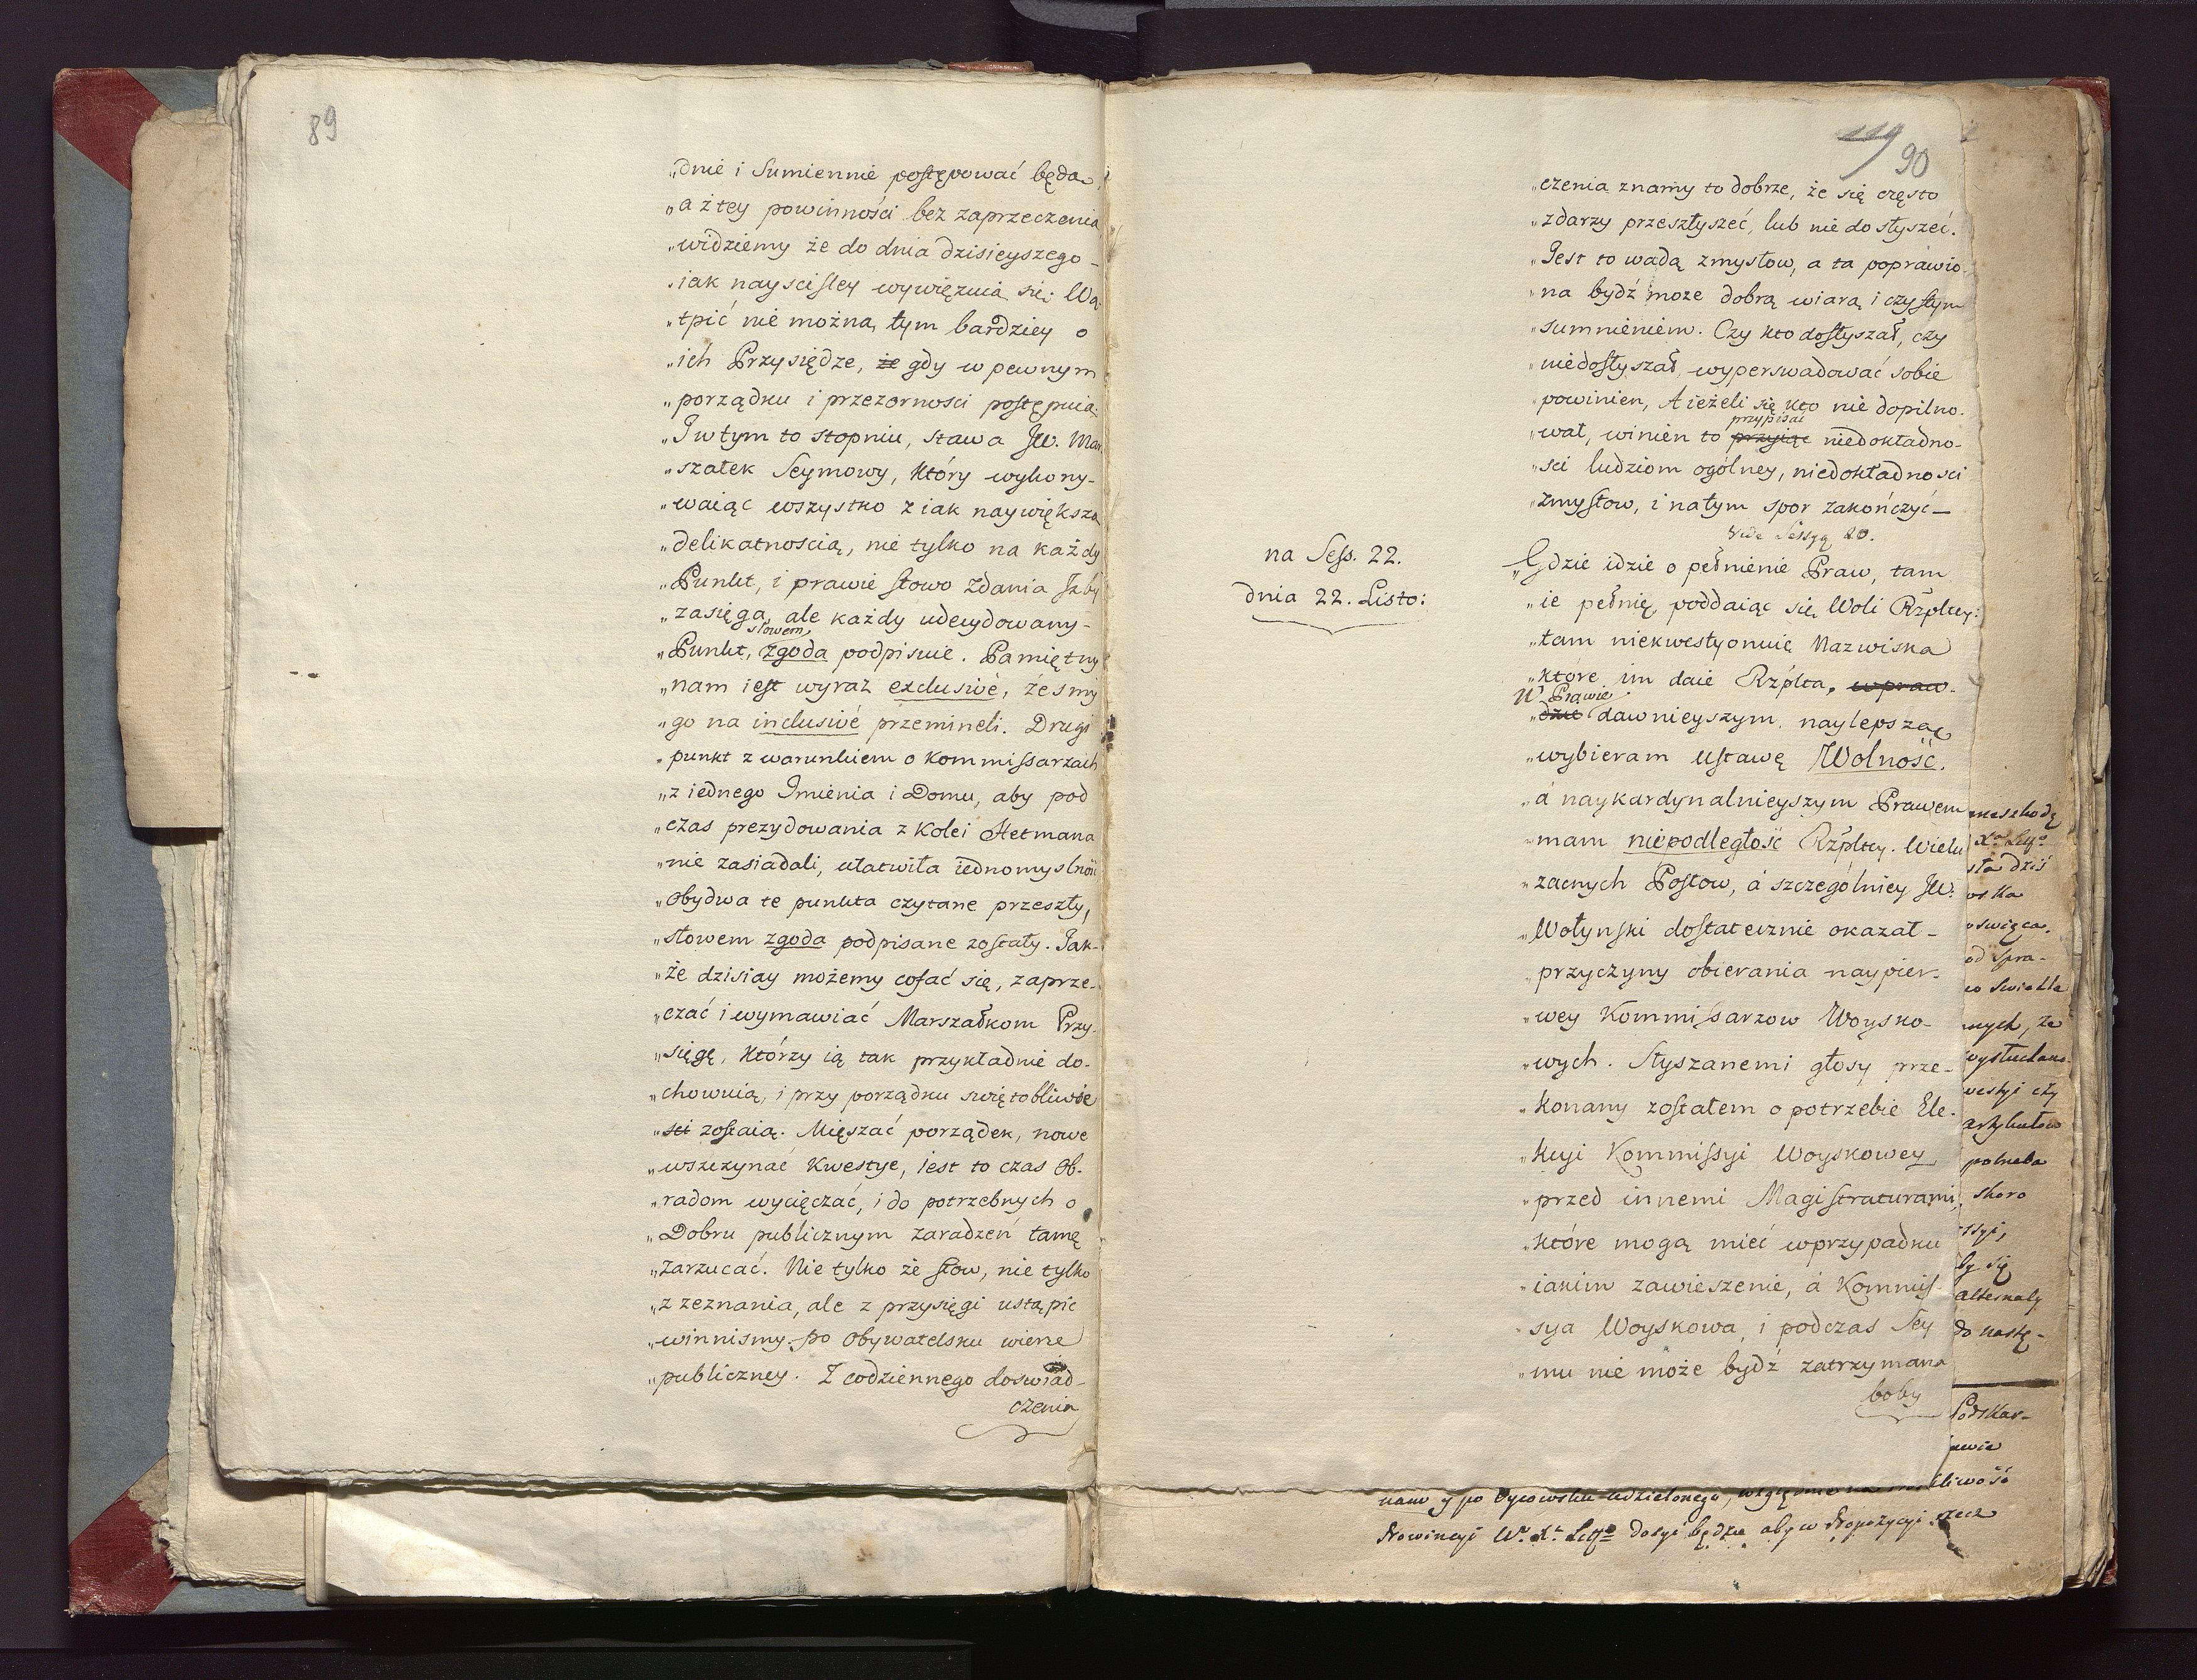 89
„dnie i Sumiennie postępować będą,
„a z tey powinności bez zaprzeczenia
„widziemy że do dnia dzisieyszego –
„iak nayscisley wywięzuią się: Wą
„tpić nie można, tym bardziey o
„ich Przysiędze, że gdy w pewnym
„porządku i przezorności postępuią:
„I w tym to stopniu, stawa JW. Mar
„szałek Seymowy, który wykony-
„waiąc wszystko z iak naywiększą
„delikatnością, nie tylko na każdy
„Punkt, i prawie słowo zdania Izby
„zasięga, ale każdy udecydowany –
słowem
„Punkt, zgoda podpisuie. Pamiętny
„nam iest wyraz exclusivè, żesmy
„go na inclusivè przemineli. Drugi
„punkt z warunkiem o Kommissarzach
„z iednego Imienia i Domu, aby pod
„czas prezydowania z Kolei Hetmana
„nie zasiadali, ułatwiła iednomyslność
„Obydwa te punkta czytane przeszły,
„słowem zgoda podpisane zostały. Jak-
„że dzisiay możemy cofać się, zaprze-
„czać i wymawiać Marszałkom Przy-
„sięgę, którzy ią tak przykładnie do-
„chowuią, i przy porządku swiętobliwie
„sci zostaią. Mięszać porządek, nowe
„wszczynać Kwestye, iest to czas Ob-
„radom wycięczać, i do potrzebnych o
„Dobru publicznym zaradzeń tamę
„zarzucać. Nie tylko że słow, nie tylko
„z zeznania, ale z przysięgi ustąpić
„winnismy po Obywatelsku wierze
„publiczney. Z codziennego doswiad-
czenia
119
90
„czenia znamy to dobrze, że się często
„zdarzy przesłyszeć, lub nie dosłyszeć.
„Jest to wadą zmysłow, a ta poprawio-
„na bydź może dobrą wiarą i czystym
„sumnieniem. Czy kto dosłyszał, czy
„niedosłyszał, wyperswadować sobie
„powinien, A ieżeli się kto nie dopilno-
przypisać
„wał, winien to przyiąć niedokładno-
„sci ludziom ogólney, niedokładności
„zmysłow, i na tym spor zakończyć –
Vide Sessyą 20.
na Sess. 22.
dnia 22. Listo:
„Gdzie idzie o pełnienie Praw, tam
„ie pełnię, poddaiąc się Woli Rzpltey:
„tam niekwestyonuię Nazwiska
„które im daie Rzplta, wpraw-
W Prawie
„dzie dawnieyszym, naylepszą
„wybieram ustawę Wolność.
„á naykardynalnieyszym Prawem
„mam niepodległość Rzpltey. Wielu
„zacnych Posłow, á szczególniey JW.
„Wołynski dostatecznie okazał –
„przyczyny obierania naypier-
„wey Kommissarzow Woysko-
„wych. Słyszanemi głosy prze-
„konany zostałem o potrzebie Ele-
„kcyi Kommissyi Woyskowey
„przed innemi Magistraturami,
„które mogą mieć w przypadku
„iakim zawieszenie, á Kommis-
„sya Woyskowa, i podczas Sey
„mu nie może bydź zatrzymana
boby